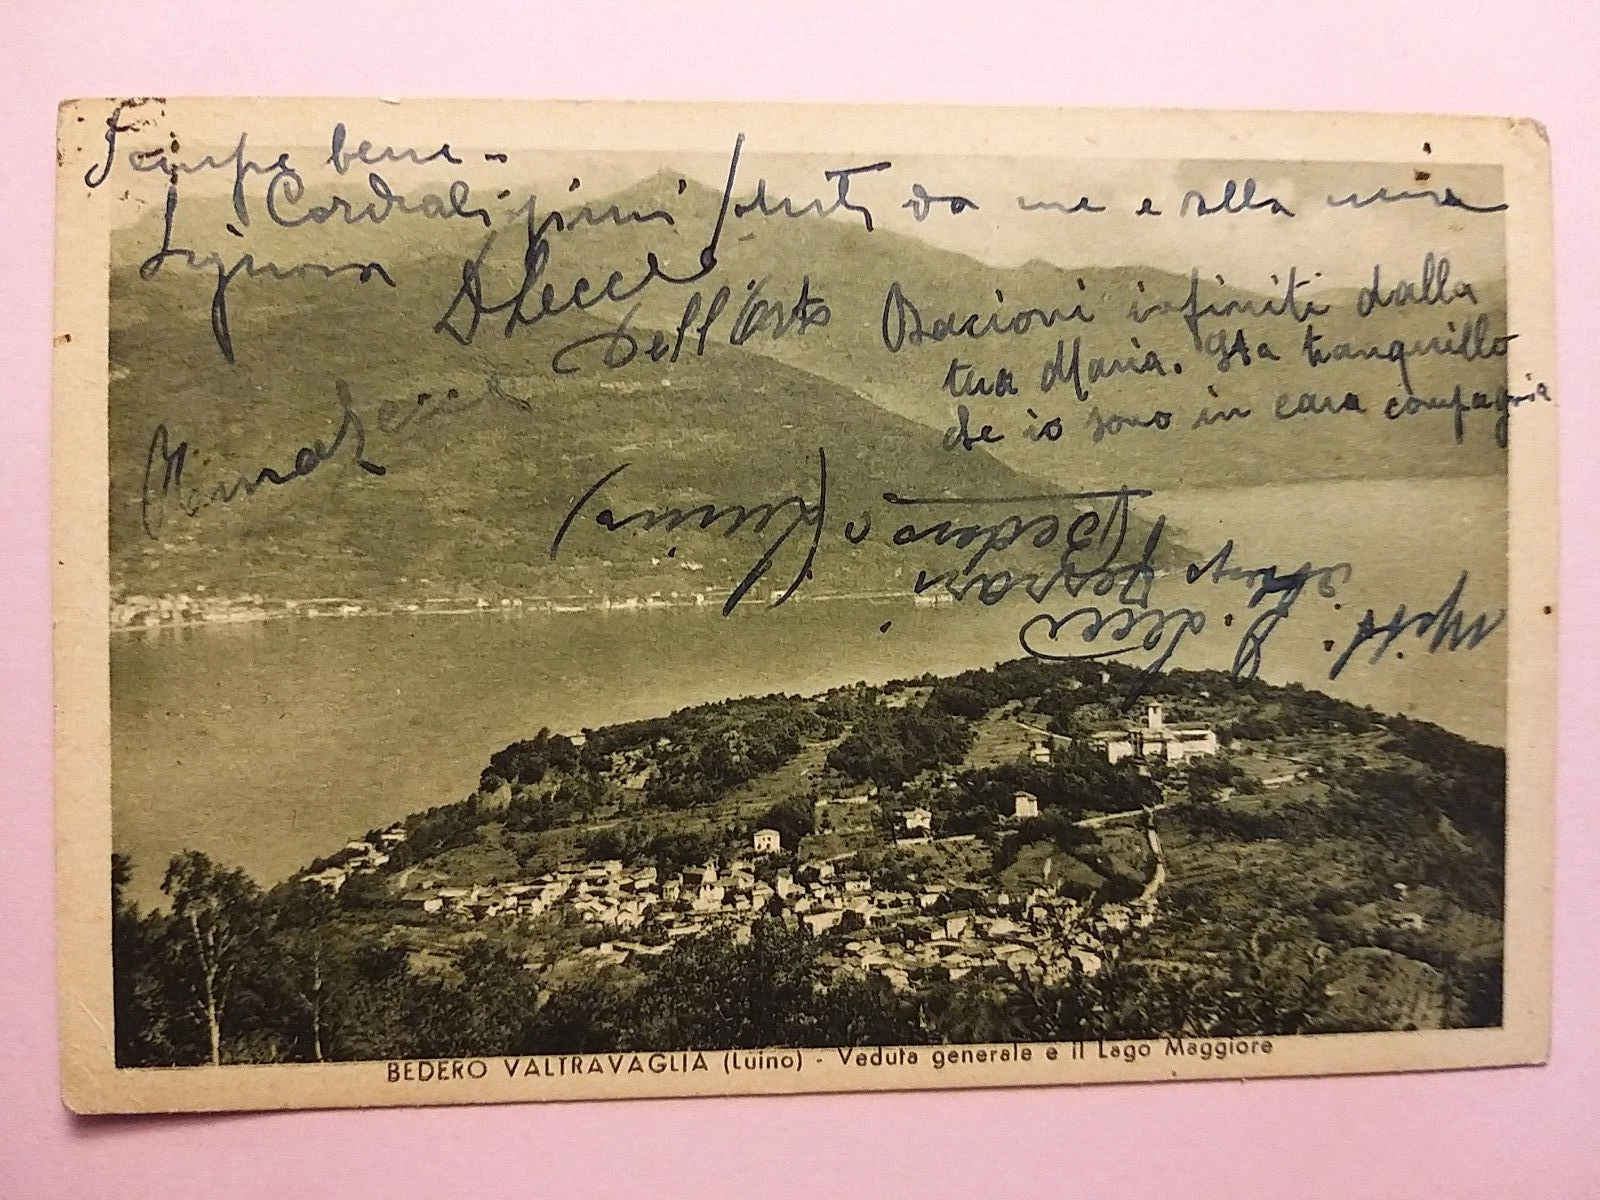 Sempre bene -
Cordialissimi saluti da me e dalla mia
Signora
DLecce
Dell'Orto
Bacioni infiniti dalla
tua Maria. Sta tranquillo
che io sono in cara compagnia
Mitt.
Bedero
(Luino)
BEDERO VALTRAVAGLIA (Luino) - Veduta generale e il Lago Maggiore